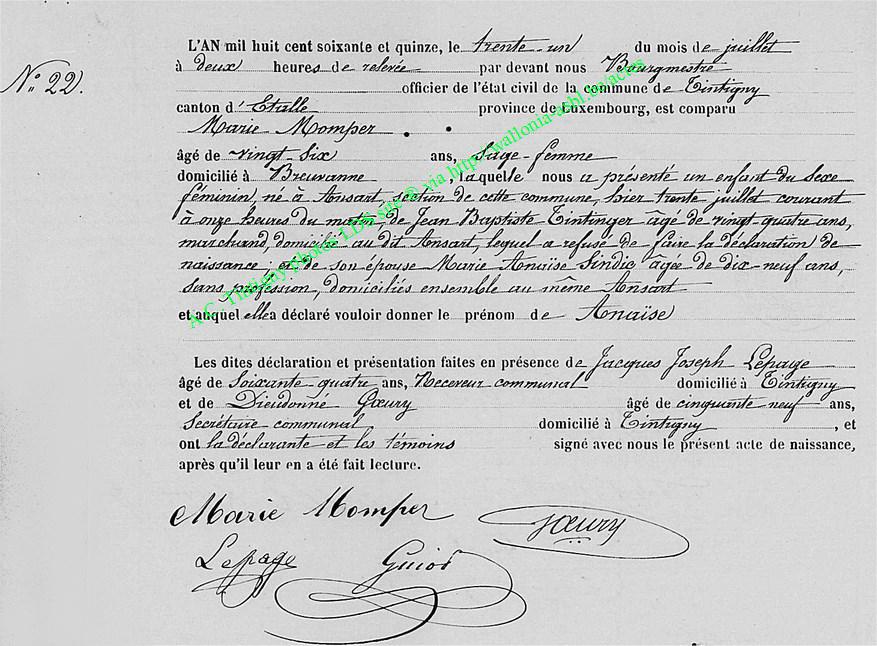 N.º 22.
L'AN mil huit cent soixante et quinze, le trente-un du mois de juillet
à deux heures de relevée par devant nous Bourgmestre
officier de l'état civil de la commune de Tintigny
canton d'Etalle province de Luxembourg, est comparu
Marie Momper
âgé de vingt-six ans, Sage-femme
domicilié à Breuvanne, laquelle nous a présenté un enfant du sexe
féminin, né à Ansart, section de cette commune, hier trente juillet courant
à onze heures du matin, de Jean Baptiste Tintinger âgé de vingt quatre ans,
marchand, domicilié au dit Ansart, lequel a refusé de faire la déclaration de
naissance; et de son épouse Marie Anaïse Sindic, âgée de dix-neuf ans,
sans profession, domiciliés ensemble au même Ansart
et auquel elle a déclaré vouloir donner le prénom de Anaïse
Les dites déclaration et présentation faites en présence de Jacques Joseph Lepage
âgé de soixante-quatre ans, Receveur communal domicilié à Tintigny
et de Dieudonné Goeury âgé de cinquante neuf ans,
Secrétaire communal domicilié à Tintigny, et
ont la déclarante et les témoins signé avec nous le présent acte de naissance,
après qu'il leur en a été fait lecture.
Marie Momper Goeury
Lepage Guiot
A.C. Tintigny photos LDS site @ via http://wallonia-asbl.be/actes